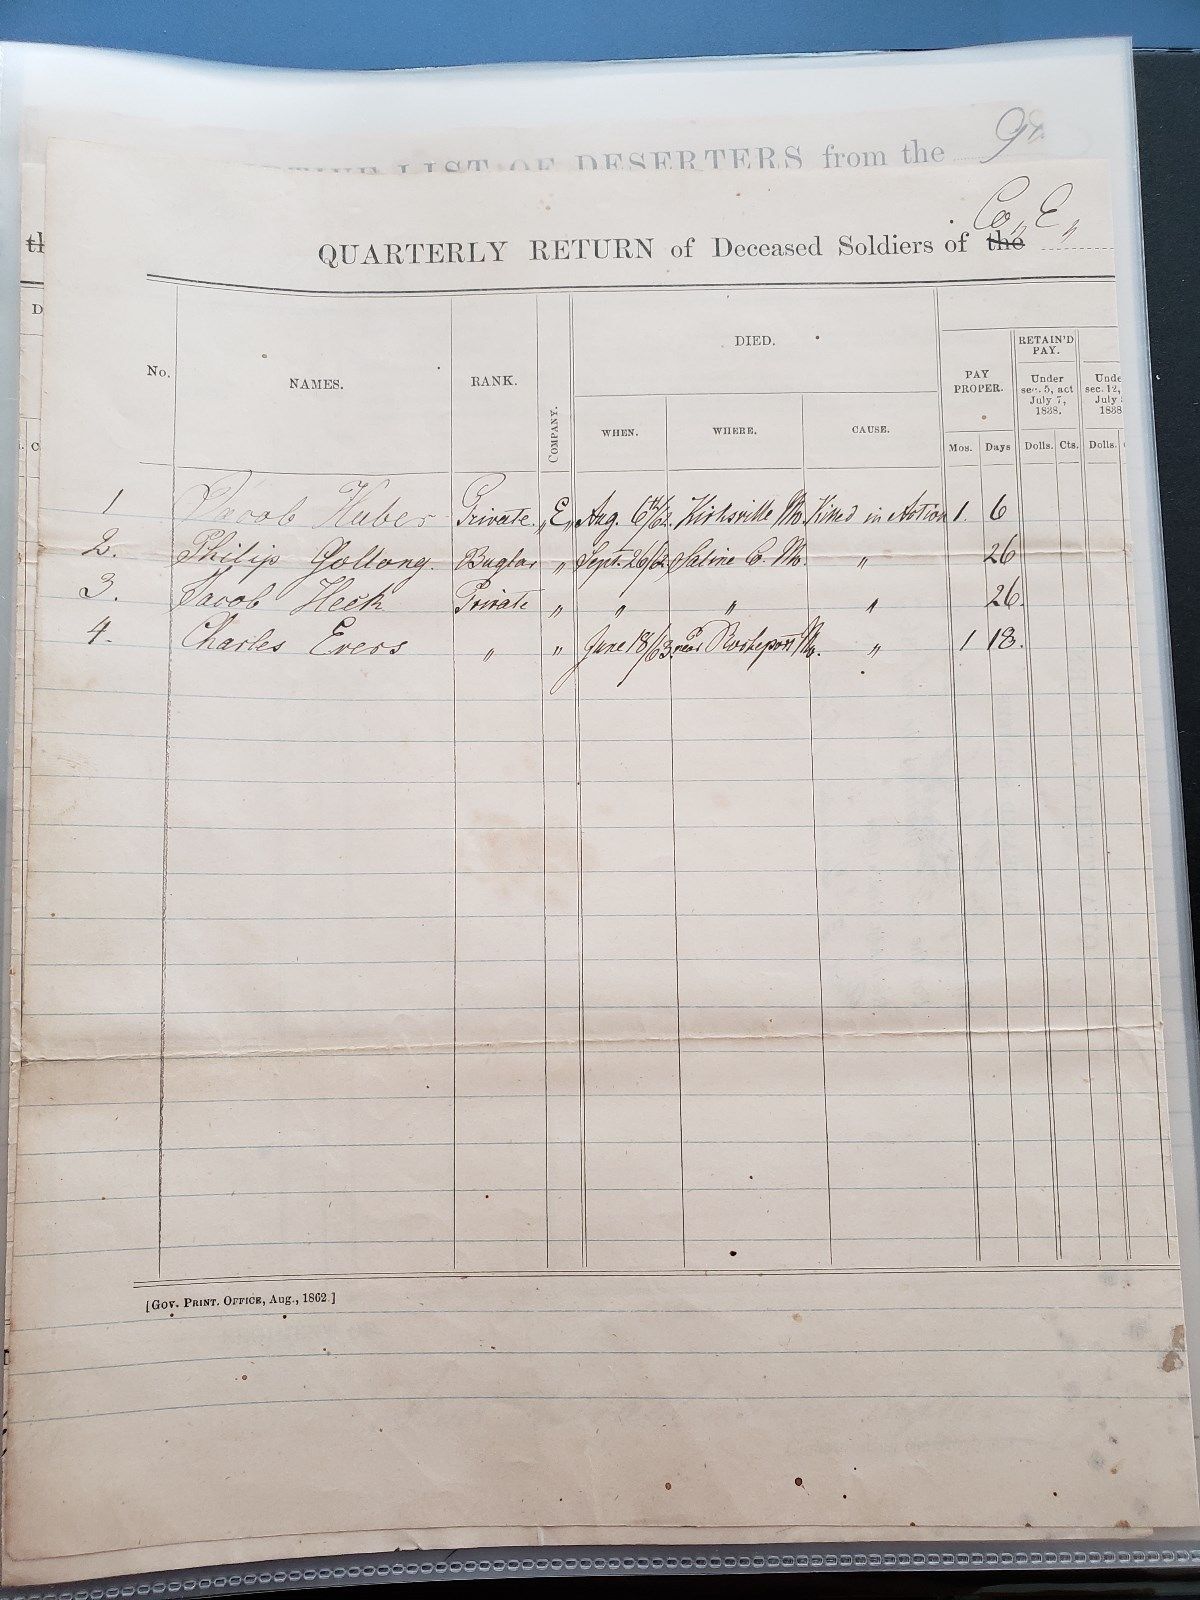 LIST OF DESERTERS from the
Co. E.
QUARTERLY RETURN of Deceased Soldiers of the
No. NAMES. RANK. COMPANY. DIED. PAY PROPER. RETAIN'D PAY.
Under sec. 5, act July 7, 1838.
sec. 12,
July
1838
WHEN. WHERE. CAUSE. Mos. Days Dolls. Cts. Dolls.
1 Jacob Huber Private „E„ Aug. 6th/62. Kirksville Mo. Killed in Action 1. 6
2. Philip Gollong. Buglar „ Sept. 26/62. Saline C. Mo. „ 26
3. Jacob Heck Private „ „ „ „ 26.
4. Charles Evers „ „ June 18/63. near Rocheport Mo. „ 1 18.
[GOV. PRINT. OFFICE, Aug., 1862.]